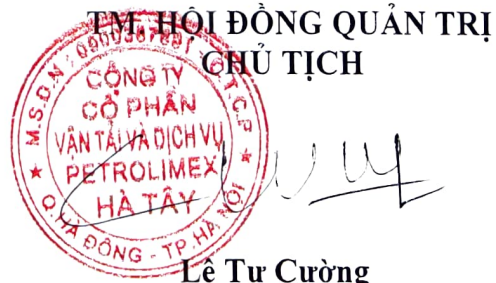 TM. HỘI ĐỒNG QUẢN TRỊ
CHỦ TỊCH
CÔNG TY
CỔ PHẦN
VẬN TẢI VÀ DỊCH VỤ
PETROLIMEX
HÀ TÂY
Q. HÀ ĐÔNG - TP. HÀ NỘI
Lê Tự Cường